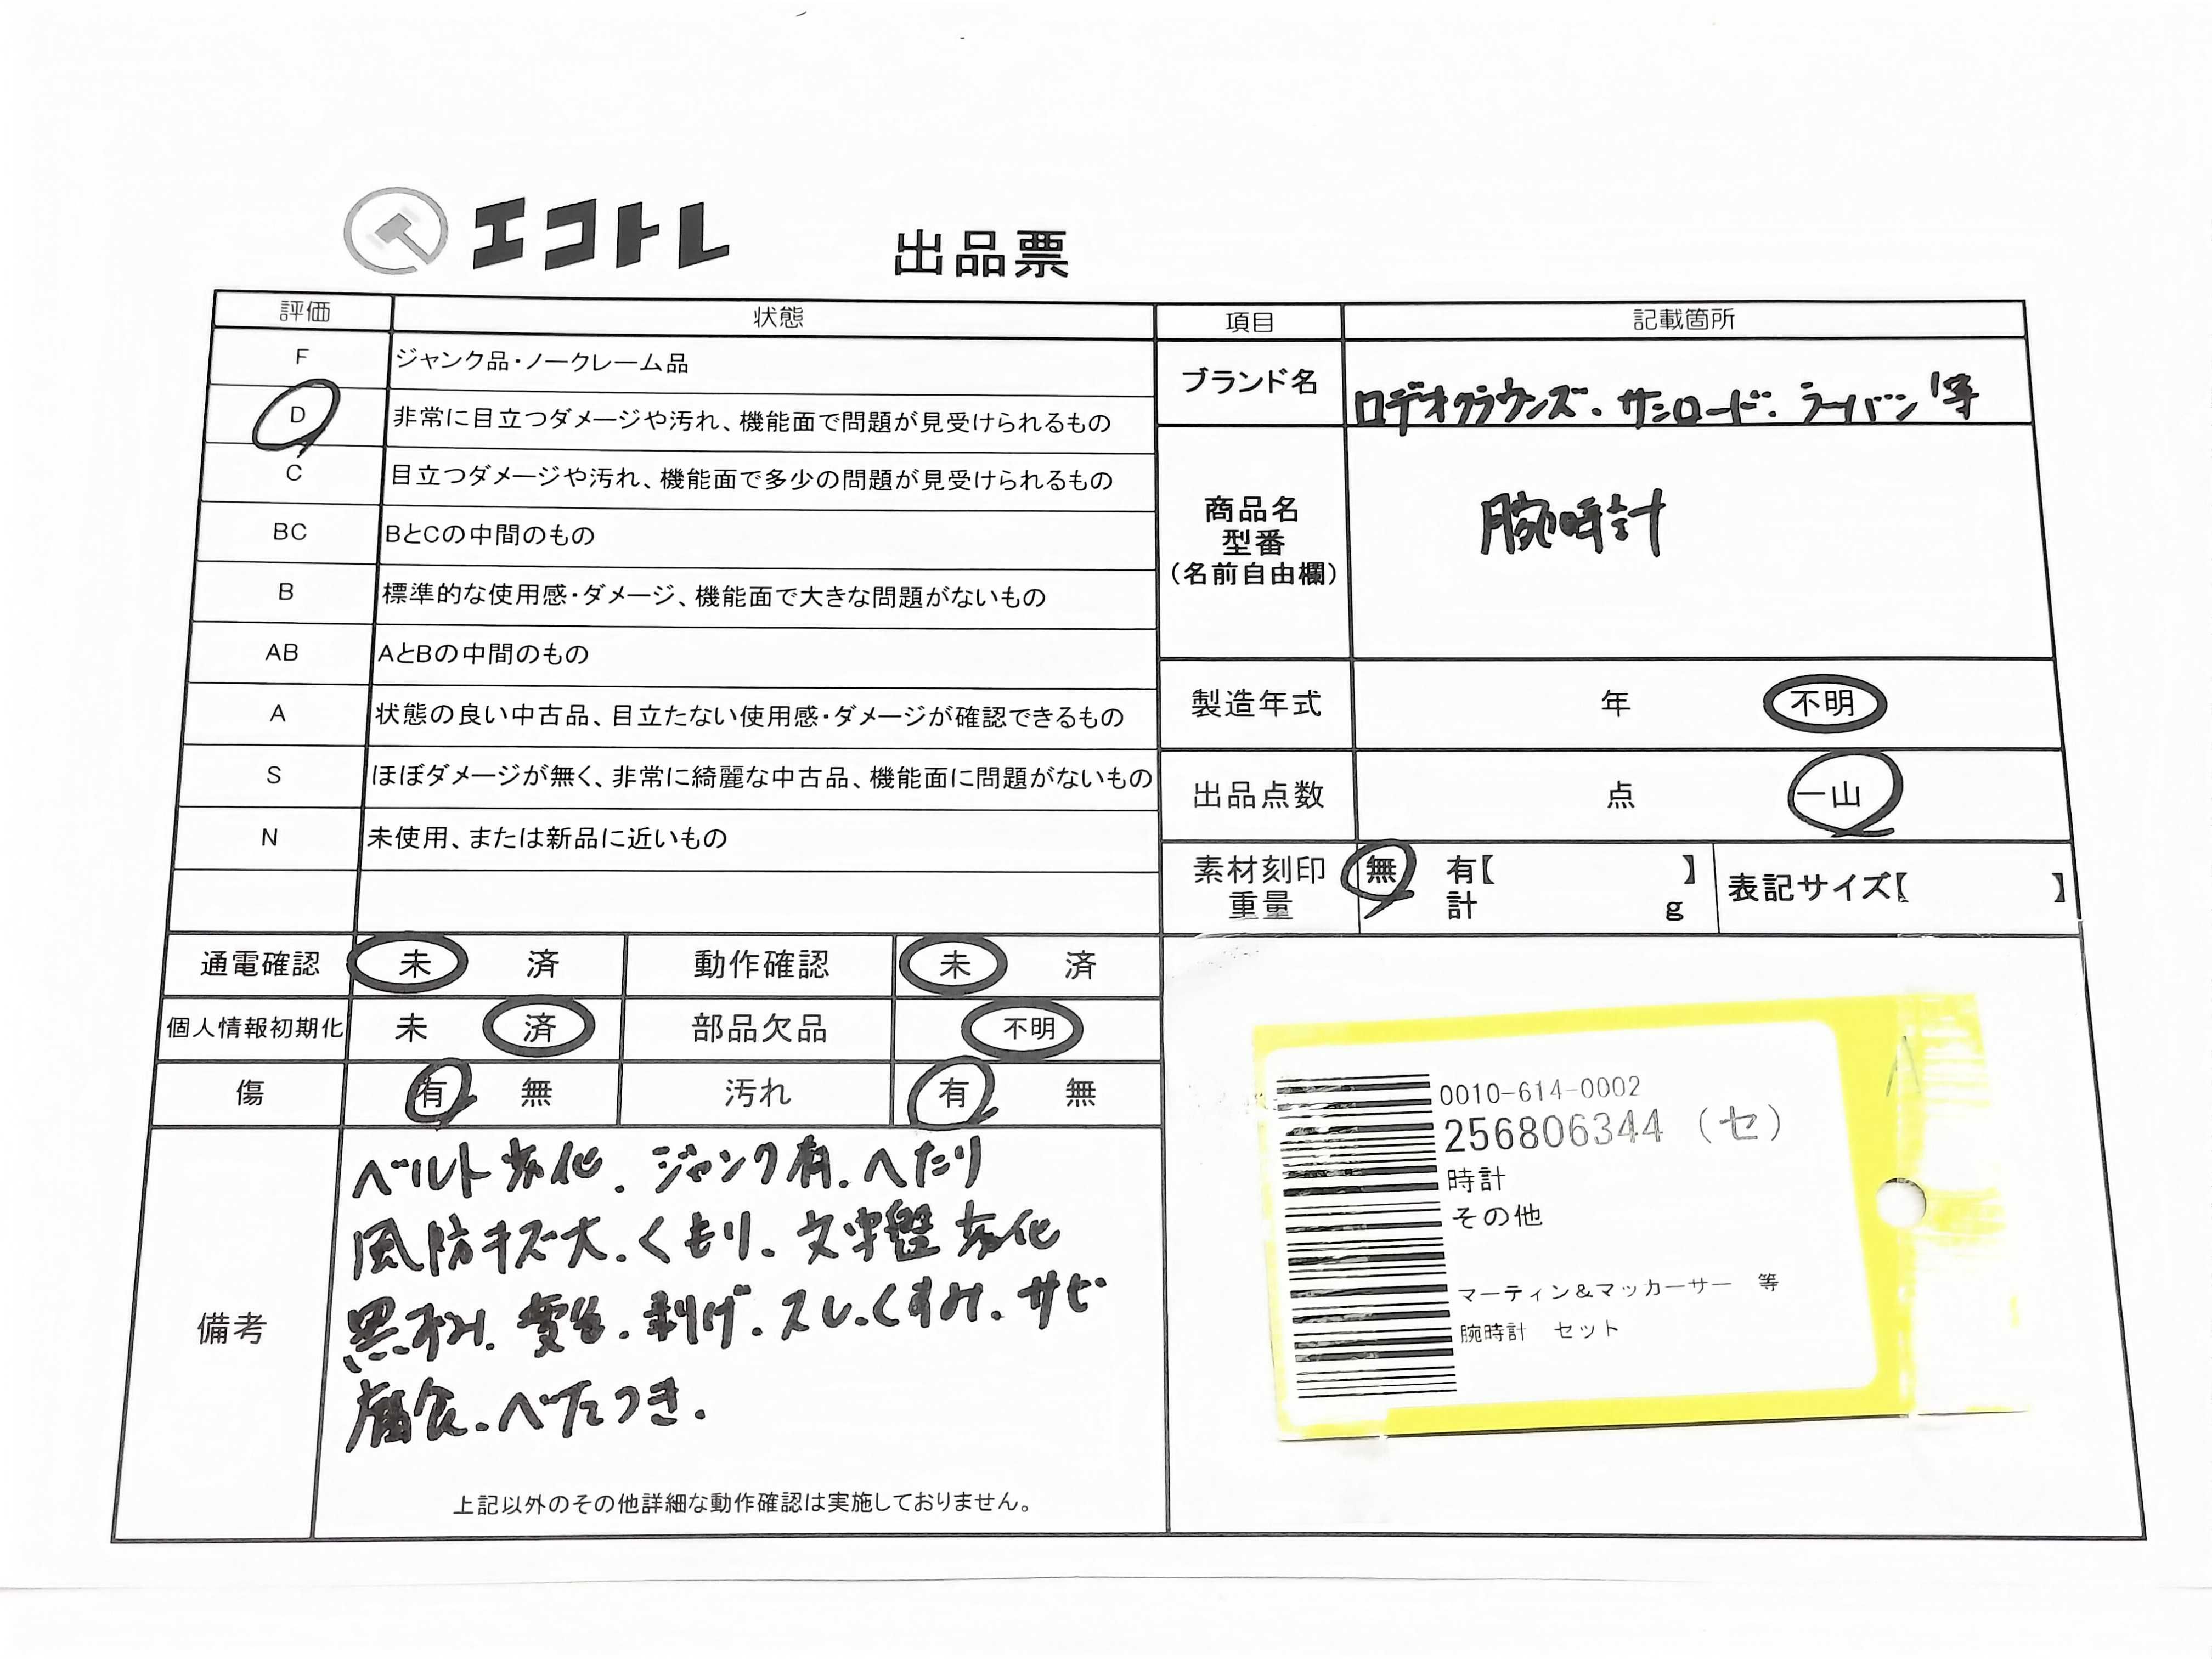 エコトレ 出品票
評価 状態
F ジャンク品・ノークレーム品
D 非常に目立つダメージや汚れ、機能面で問題が見受けられるもの
C 目立つダメージや汚れ、機能面で多少の問題が見受けられるもの
BC BとCの中間のもの
B 標準的な使用感・ダメージ、機能面で大きな問題がないもの
AB AとBの中間のもの
A 状態の良い中古品、目立たない使用感・ダメージが確認できるもの
S ほぼダメージが無く、非常に綺麗な中古品、機能面に問題がないもの
N 未使用、または新品に近いもの
項目 記載箇所
ブランド名 ロデオクラウンズ.サンロード.ラーバン 等
商品名
型番
(名前自由欄)
腕時計
製造年式 年 不明
出品点数 点 一山
素材刻印 無 有【 】
重量 計 g
表記サイズ【 】
通電確認 未 済 動作確認 未 済
個人情報初期化 未 済 部品欠品 不明
傷 有 無 汚れ 有 無
備考
ベルト劣化.ジャンク有.へたり
風防キズ大.くもり.文字盤劣化
黒ずみ.変色.剥げ.スレ.くすみ.サビ
腐食.ベタつき.
上記以外のその他詳細な動作確認は実施しておりません。
0010-614-0002
256806344 (セ)
時計
その他
マーティン&マッカーサー 等
腕時計 セット